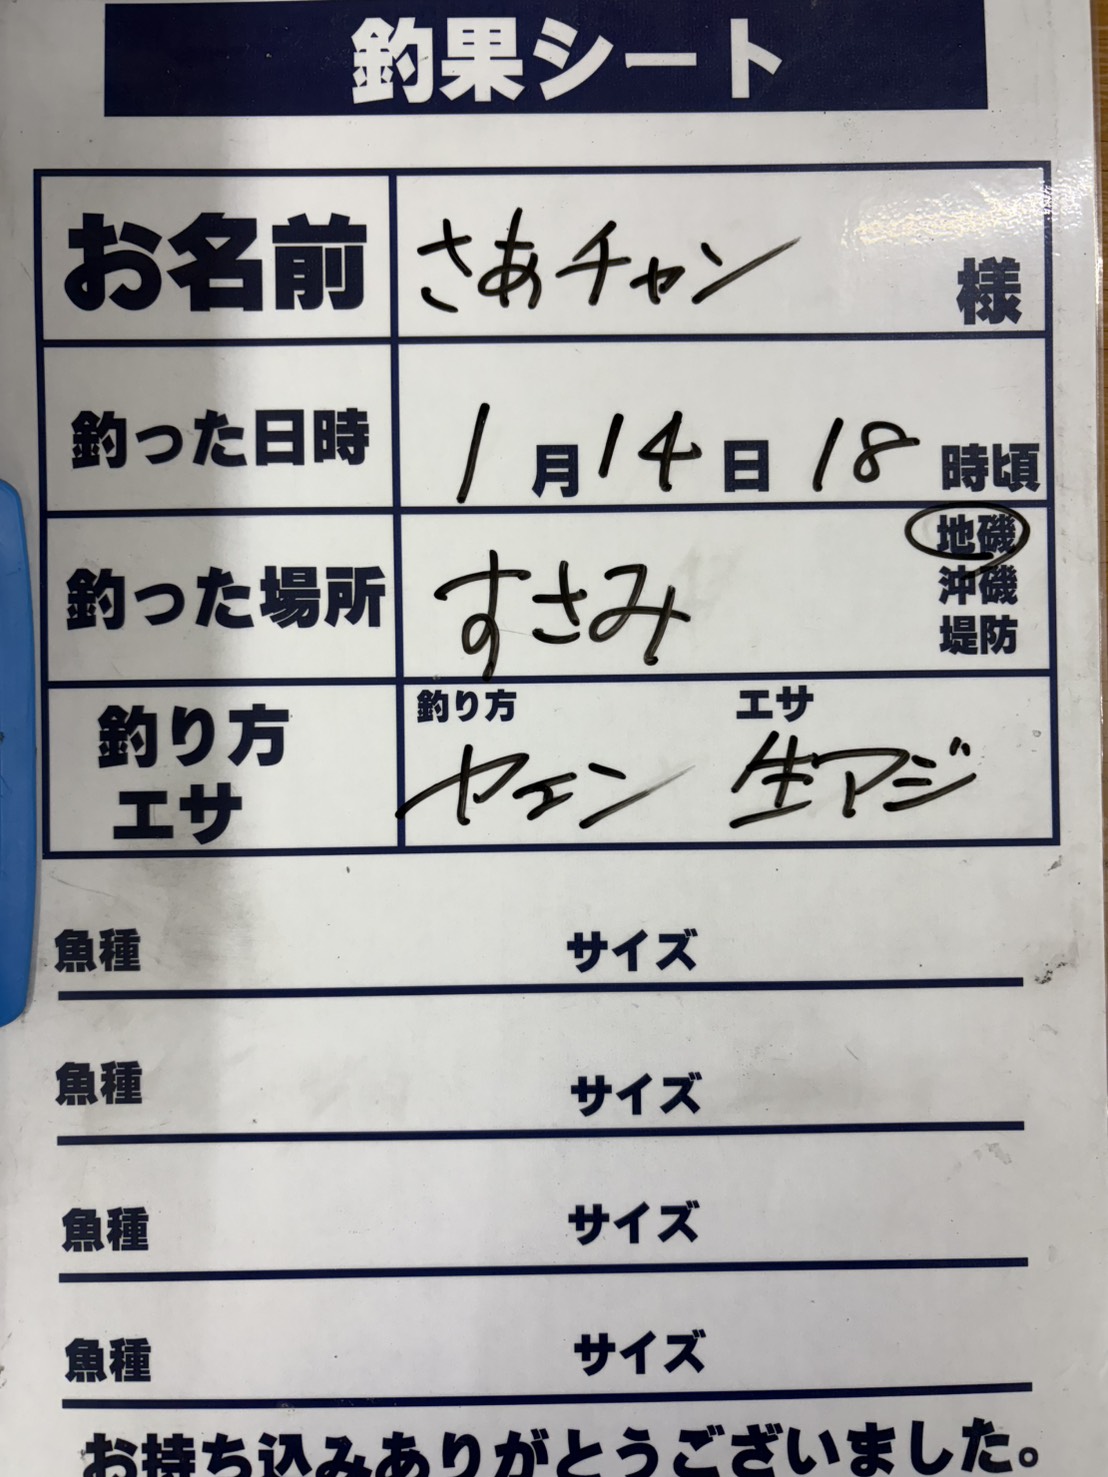 釣果シート
お名前 さあチャン 様
釣った日時 1月14日 18時頃
釣った場所 すさみ 地磯
沖磯
堤防
釣り方 エサ
釣り方 ヤエン エサ 生アジ
魚種 サイズ
魚種 サイズ
魚種 サイズ
魚種 サイズ
お持ち込みありがとうございました。